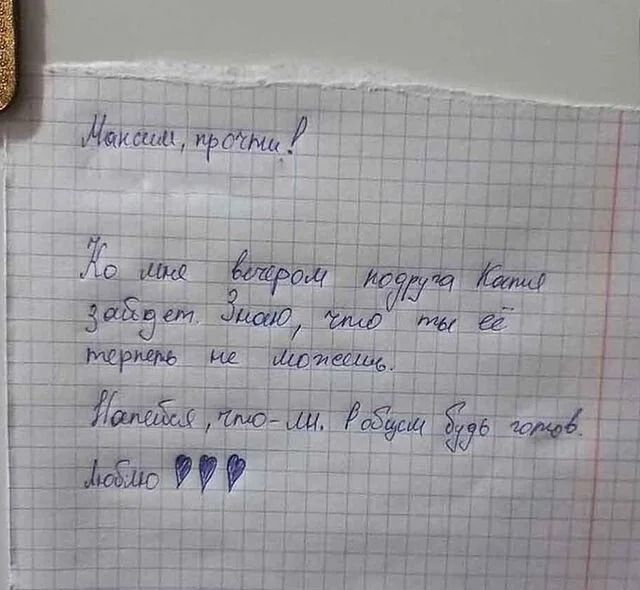 Максим, прочти!
Ко мне вечером подруга Катя
зайдет. Знаю, что ты её
терпеть не можешь.
Напейся, что-ли. В общем будь готов.
Люблю ♥♥♥